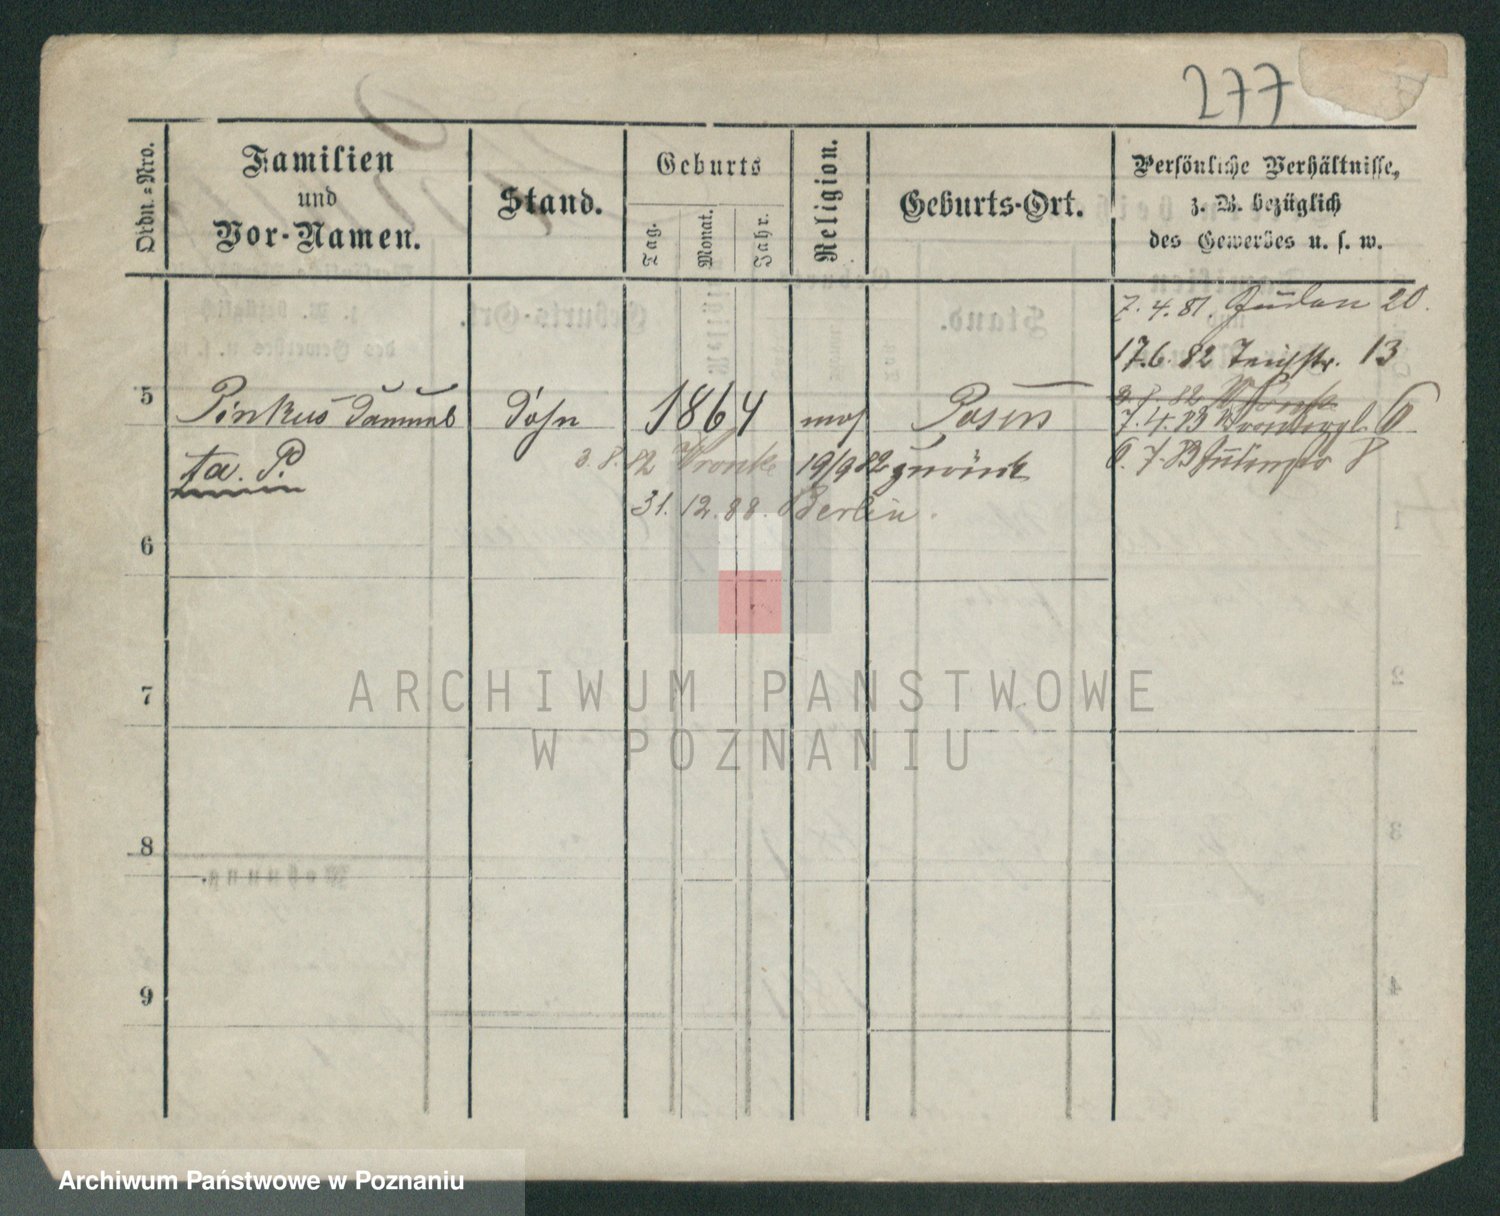 277
Ordn.=Nro.
Familien
und
Vor-Namen.
Stand.
Geburts
Tag.
Monat.
Jahr.
Religion.
Geburts-Ort.
Persönliche Verhältnisse,
z. B. bezüglich
des Gewerbes u. s. w.
7. 4. 81 Juden 20.
17.6. 82 Teichstr. 13
5
Pinkus Samuel
Sohn
1864
mos
Posen
3. 8. 82 Wronke
7. 4. 83 6
ta. P.
3. 8. 82 Wronke 19/9 82 zurück
6. 7. 83 8
31. 12. 88. Berlin.
6
7
8
9
1
2
3
4
Stand.
Geburts-Ort.
Wohnung.
ARCHIWUM PAŃSTWOWE
W POZNANIU
Archiwum Państwowe w Poznaniu